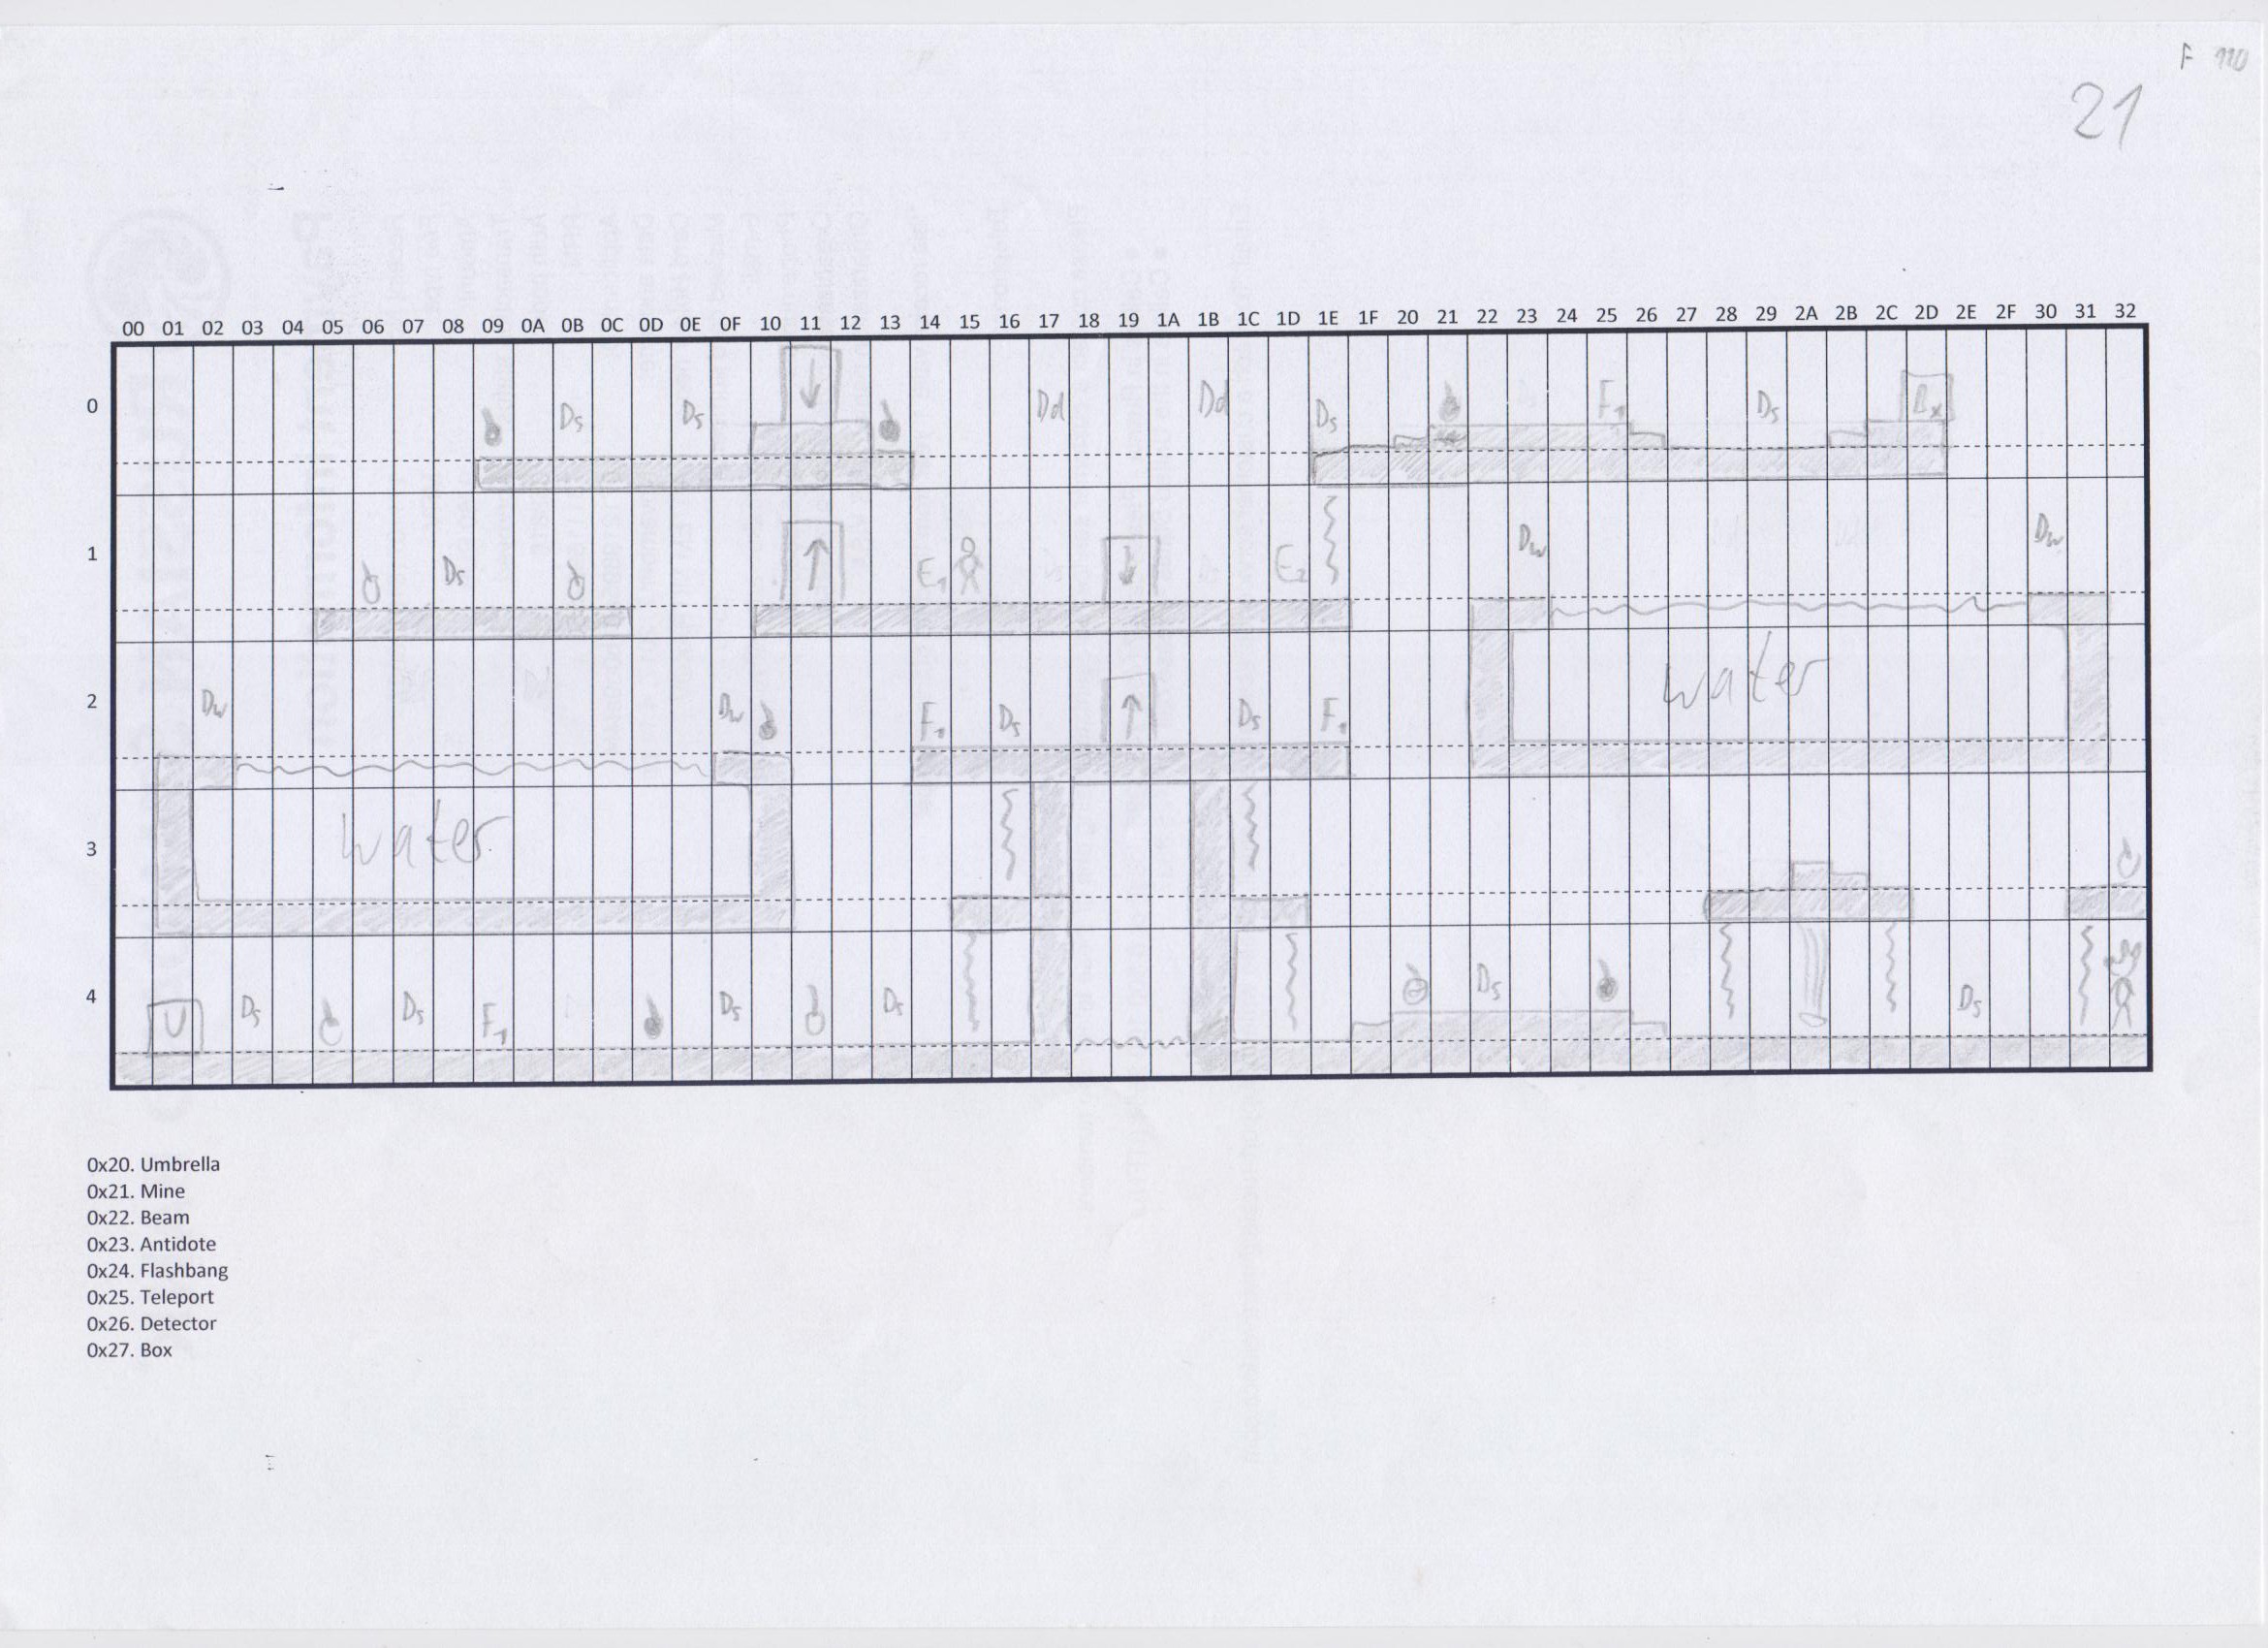 F 110
21
00 01 02 03 04 05 06 07 08 09 0A 0B 0C 0D 0E 0F 10 11 12 13 14 15 16 17 18 19 1A 1B 1C 1D 1E 1F 20 21 22 23 24 25 26 27 28 29 2A 2B 2C 2D 2E 2F 30 31 32
0 Ds Ds Dd Dd Ds F1 Ds Bx
1 Ds E1 E2 Dw Dw
2 Dw Dw F1 Ds Ds F1 water
3 water
4 U Ds Ds F1 Ds Ds Ds Ds
0x20. Umbrella
0x21. Mine
0x22. Beam
0x23. Antidote
0x24. Flashbang
0x25. Teleport
0x26. Detector
0x27. Box